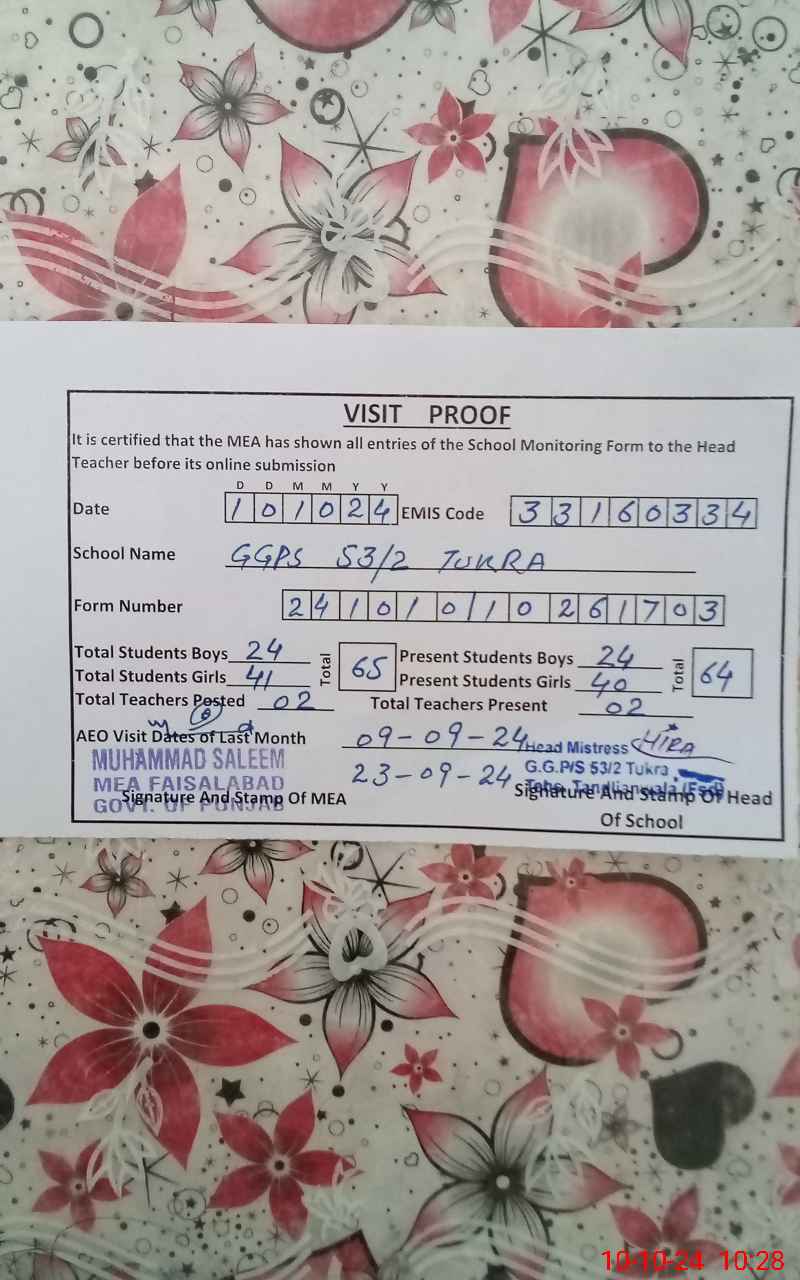 VISIT PROOF
It is certified that the MEA has shown all entries of the School Monitoring Form to the Head
Teacher before its online submission
D D M M Y Y
Date 101024 EMIS Code 33160334
School Name GGPS 53/2 TUKRA
Form Number 241010101026 1703
Total Students Boys 24 Total 65 Present Students Boys 24 Total 64
Total Students Girls 41 Present Students Girls 40
Total Teachers Posted 02 Total Teachers Present 02
AEO Visit Dates of Last Month 09-09-24
23-09-24
MUHAMMAD SALEEM
MEA FAISALABAD
GOVT. OF PUNJAB
Signature And Stamp Of MEA
Head Mistress HIRA
G.G.P/S 53/2 Tukra
Teh: Tandlianwala (Fsd)
Signature And Stamp Of Head
Of School
10-10-24 10:28